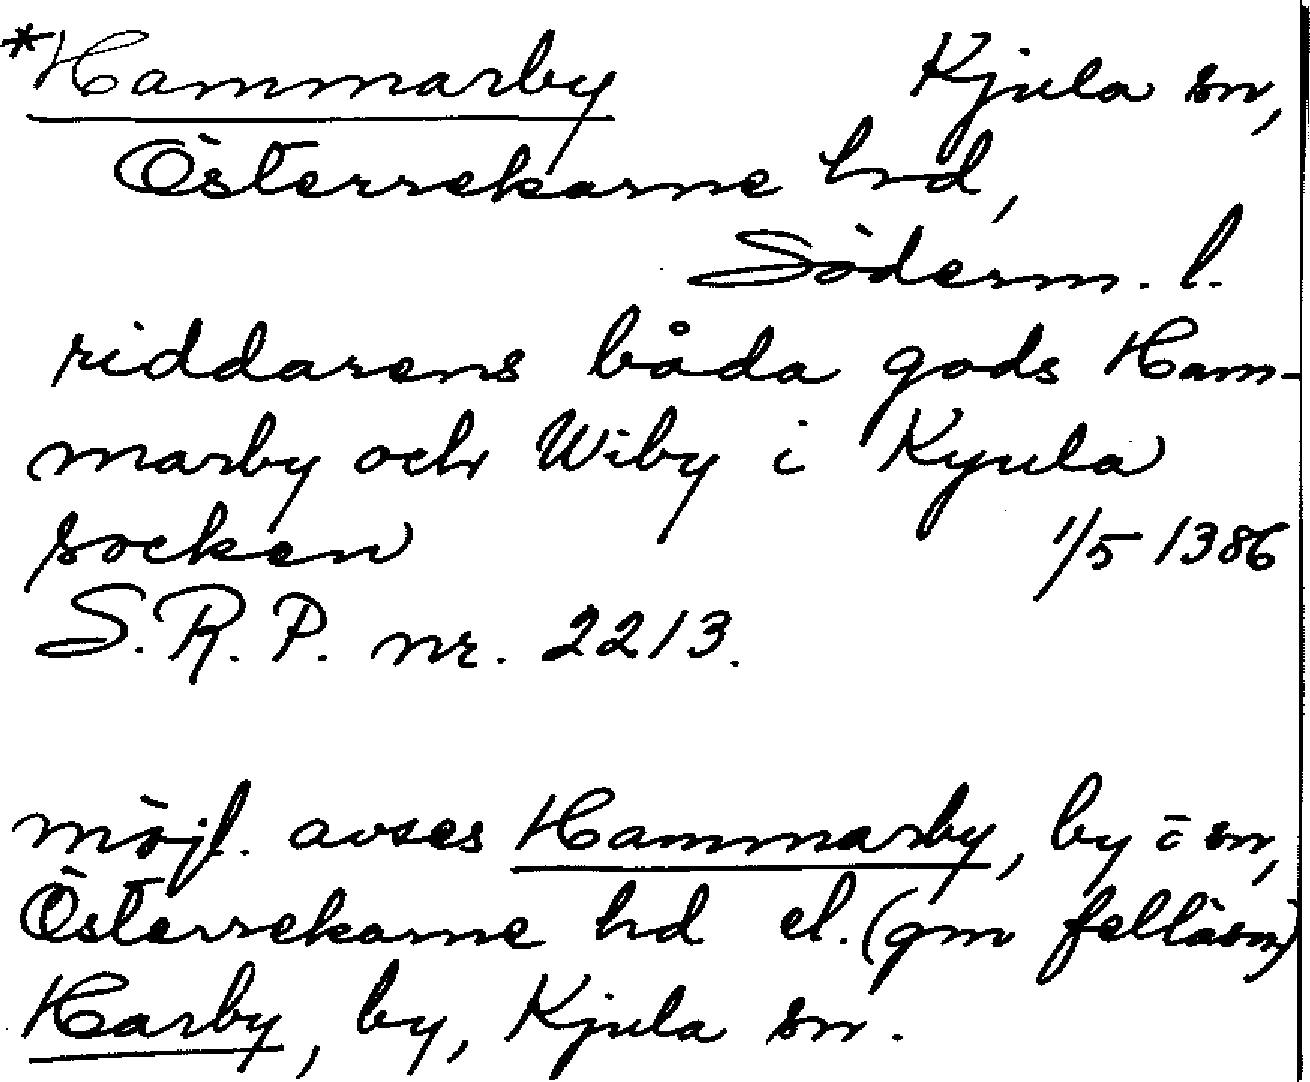 *Hammarby Kjula sn,
Österrekarne hrd,
Söderm. l.
riddarens båda gods Ham-
marby och Wiby i Kyula
socken 1/5 1386
S.R.P. nr. 2213.
möjl. avses Hammarby, by i sn,
Österrekarne hd el. (gm felläsn)
Harby, by, Kjula sn.